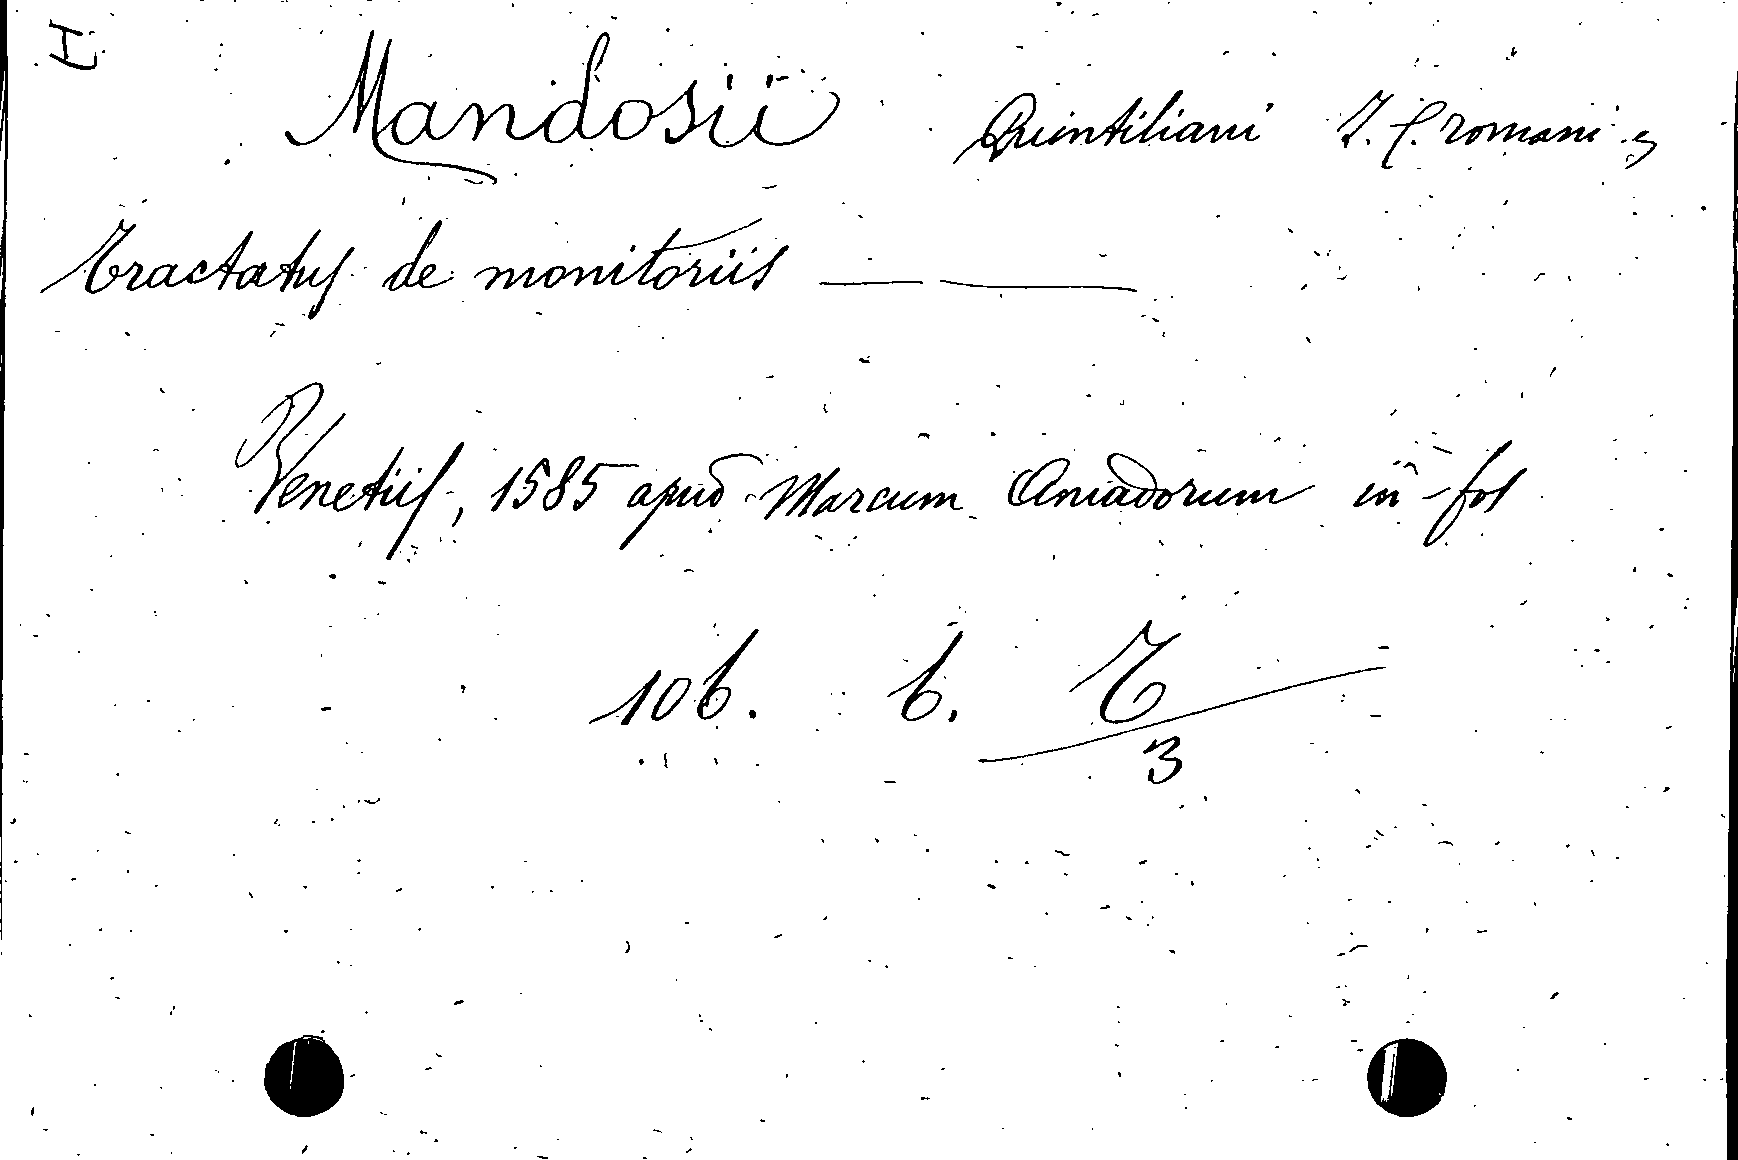 H
Mandosii Quintiliani J. C. romani
Tractatus de monitoriis
Venetiis, 1585 apud Marcum Amadorum in-fol
106. b. T
3